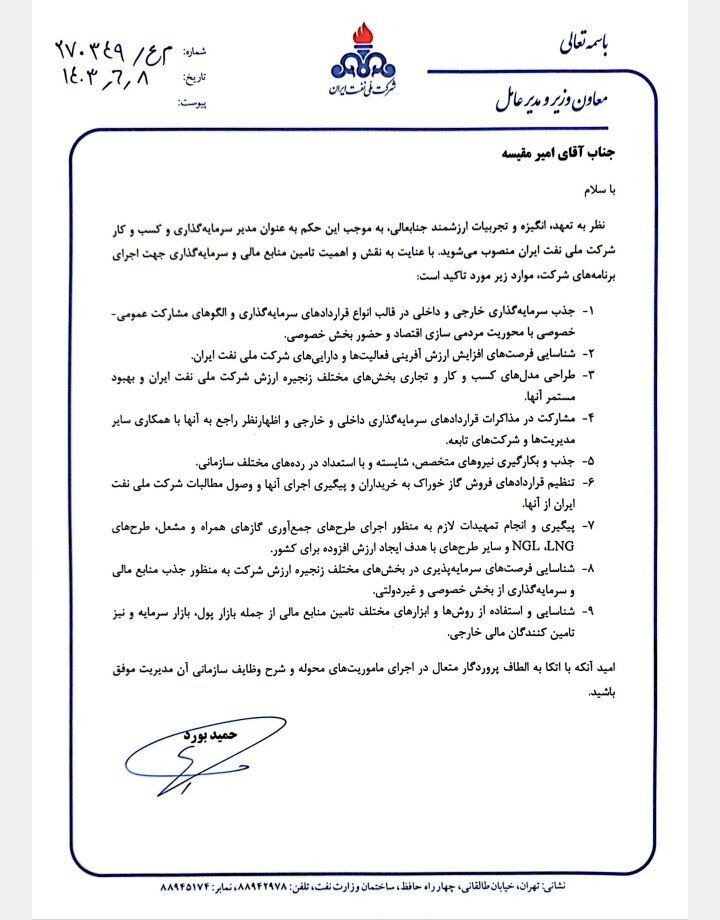 باسمه تعالی
معاون وزیر و مدیر عامل
شرکت ملی نفت ایران
شماره: م ع / ۲۷۰۳۴۹
تاریخ: ۱۴۰۳٫۶٫۸
پیوست:
جناب آقای امیر مقیسه
با سلام
نظر به تعهد، انگیزه و تجربیات ارزشمند جنابعالی، به موجب این حکم به عنوان مدیر سرمایه‌گذاری و کسب و کار
شرکت ملی نفت ایران منصوب می‌شوید. با عنایت به نقش و اهمیت تامین منابع مالی و سرمایه‌گذاری جهت اجرای
برنامه‌های شرکت، موارد زیر مورد تاکید است:
۱- جذب سرمایه‌گذاری خارجی و داخلی در قالب انواع قراردادهای سرمایه‌گذاری و الگوهای مشارکت عمومی-
خصوصی با محوریت مردمی سازی اقتصاد و حضور بخش خصوصی.
۲- شناسایی فرصت‌های افزایش ارزش آفرینی فعالیت‌ها و دارایی‌های شرکت ملی نفت ایران.
۳- طراحی مدل‌های کسب و کار و تجاری بخش‌های مختلف زنجیره ارزش شرکت ملی نفت ایران و بهبود
مستمر آنها.
۴- مشارکت در مذاکرات قراردادهای سرمایه‌گذاری داخلی و خارجی و اظهارنظر راجع به آنها با همکاری سایر
مدیریت‌ها و شرکت‌های تابعه.
۵- جذب و بکارگیری نیروهای متخصص، شایسته و با استعداد در رده‌های مختلف سازمانی.
۶- تنظیم قراردادهای فروش گاز خوراک به خریداران و پیگیری اجرای آنها و وصول مطالبات شرکت ملی نفت
ایران از آنها.
۷- پیگیری و انجام تمهیدات لازم به منظور اجرای طرح‌های جمع‌آوری گازهای همراه و مشعل، طرح‌های
NGL ،LNG و سایر طرح‌های با هدف ایجاد ارزش افزوده برای کشور.
۸- شناسایی فرصت‌های سرمایه‌پذیری در بخش‌های مختلف زنجیره ارزش شرکت به منظور جذب منابع مالی
و سرمایه‌گذاری از بخش خصوصی و غیردولتی.
۹- شناسایی و استفاده از روش‌ها و ابزارهای مختلف تامین منابع مالی از جمله بازار پول، بازار سرمایه و نیز
تامین کنندگان مالی خارجی.
امید آنکه با اتکا به الطاف پروردگار متعال در اجرای ماموریت‌های محوله و شرح وظایف سازمانی آن مدیریت موفق
باشید.
حمید بورد
نشانی: تهران، خیابان طالقانی، چهار راه حافظ، ساختمان وزارت نفت، تلفن: ۸۸۹۴۲۹۷۸، نمابر: ۸۸۹۴۵۱۷۴